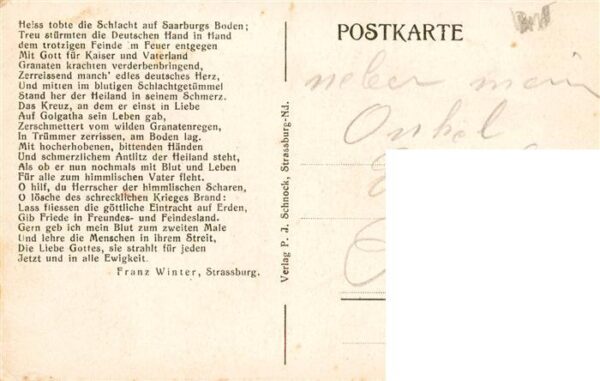 Heiss tobte die Schlacht auf Saarburgs Boden;
Treu stürmten die Deutschen Hand in Hand
dem trotzigen Feinde im Feuer entgegen
Mit Gott für Kaiser und Vaterland
Granaten krachten verderbenbringend,
Zerreissend manch' edles deutsches Herz,
Und mitten im blutigen Schlachtgetümmel
Stand her der Heiland in seinem Schmerz.
Das Kreuz, an dem er einst in Liebe
Auf Golgatha sein Leben gab,
Zerschmettert vom wilden Granatenregen,
in Trümmer zerrissen, am Boden lag.
Mit hocherhobenen, bittenden Händen
Und schmerzlichem Antlitz der Heiland steht,
Als ob er nun nochmals mit Blut und Leben
Für alle zum himmlischen Vater fleht.
O hilf, du Herrscher der himmlischen Scharen,
O lösche des schrecklichen Krieges Brand:
Lass fliessen die göttliche Eintracht auf Erden,
Gib Friede in Freundes- und Feindesland.
Gern geb ich mein Blut zum zweiten Male
Und lehre die Menschen in ihrem Streit,
Die Liebe Gottes, sie strahlt für jeden
Jetzt und in alle Ewigkeit.
Franz Winter, Strassburg.
Verlag P. J. Schnock, Strassburg-Nd.
POSTKARTE
mein
Onkel